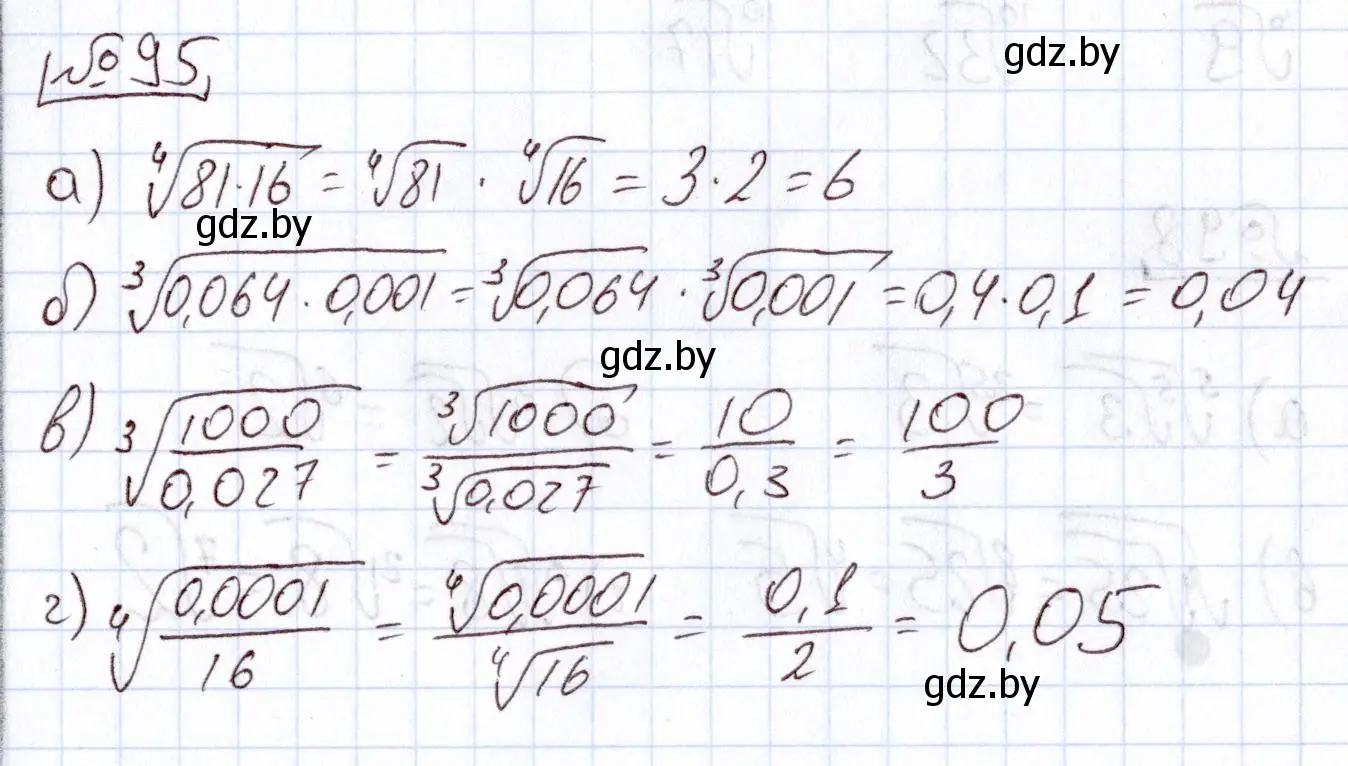 №95
gdz.by
а) ⁴√(81·16) = ⁴√81 · ⁴√16 = 3·2 = 6
gdz.by
б) ³√(0,064·0,001) = ³√0,064 · ³√0,001 = 0,4·0,1 = 0,04
gdz.by
в) ³√(1000/0,027) = ³√1000/³√0,027 = 10/0,3 = 100/3
г) ⁴√(0,0001/16) = ⁴√0,0001/⁴√16 = 0,1/2 = 0,05
gdz.by